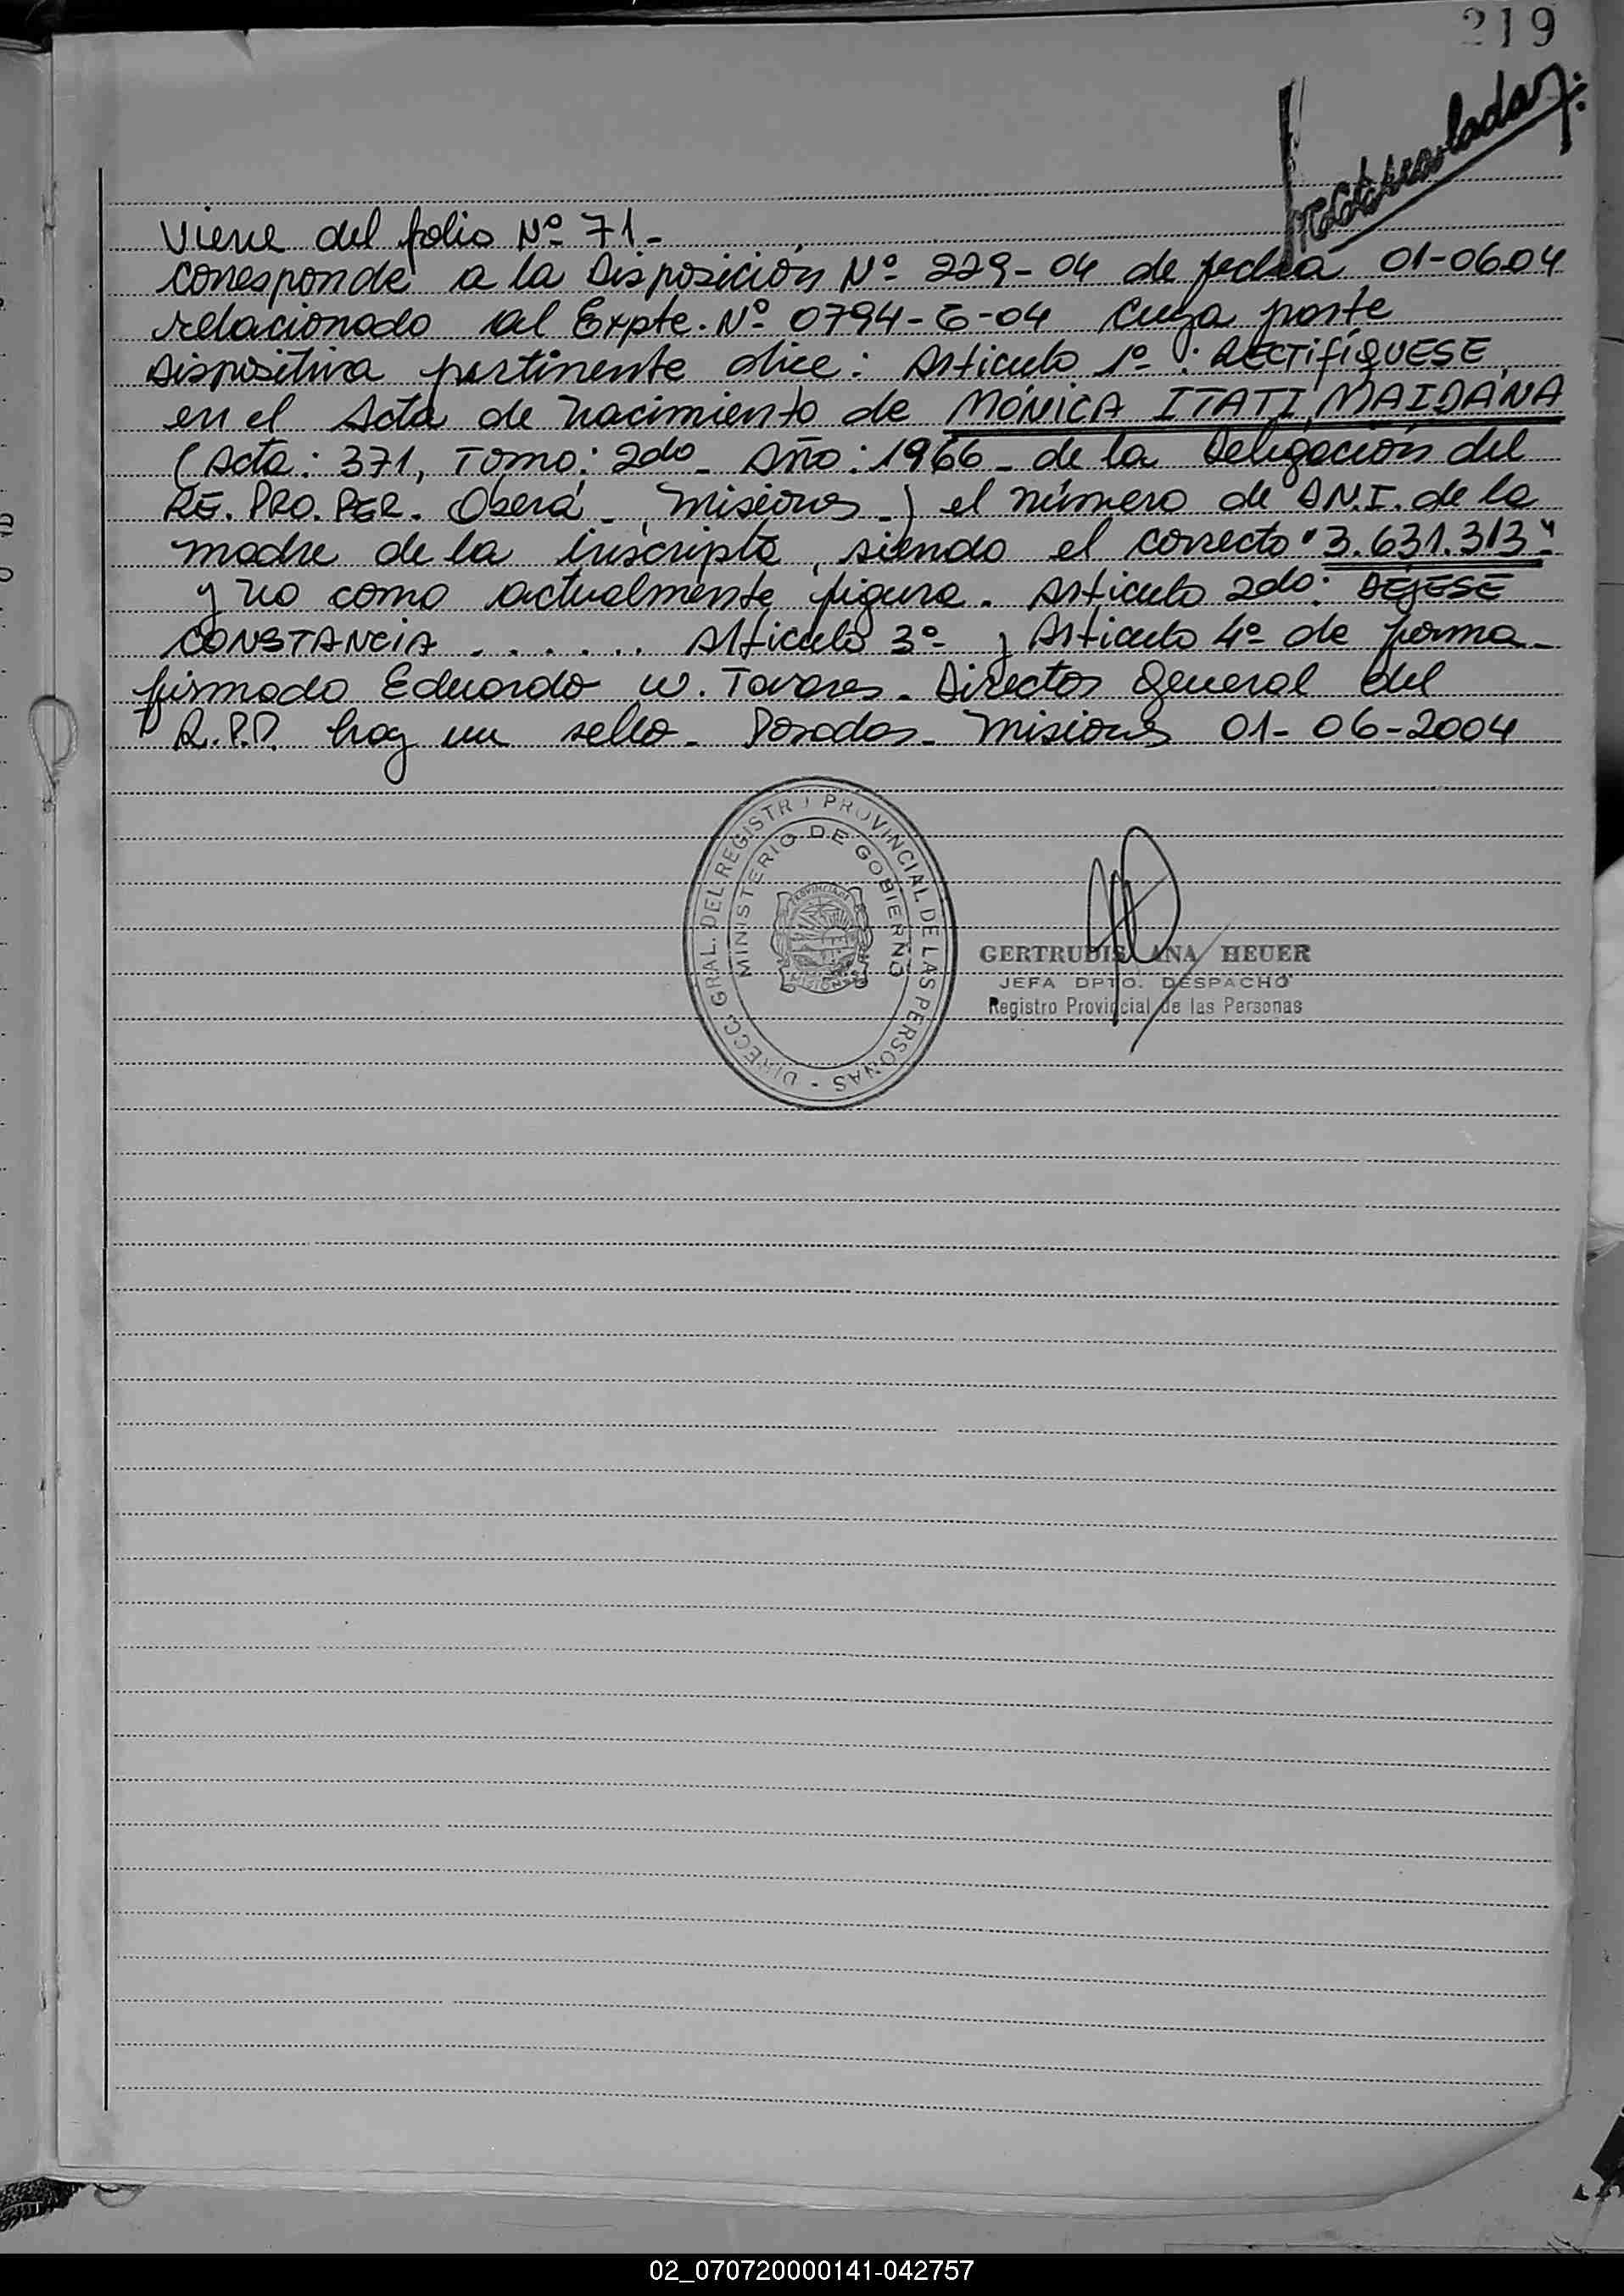 219
Viene del folio Nº 71-
Corresponde a la Disposición Nº 229-04 de fecha 01-06-04
relacionado al Expte. Nº 0794-E-04 cuya parte
Dispositiva pertinente dice: Articulo 1º: RECTIFÍQUESE,
en el Acta de nacimiento de MÓNICA ITATI MAIDANA
(Acta: 371, Tomo: 2do- Año: 1966- de la Delegación del
RE. PRO. PER. Oberá-, Misiones-) el número de D.N.I. de la
madre de la inscripta, siendo el correcto "3.631.313"
y no como actualmente figura. Articulo 2do: DÉJESE
CONSTANCIA ...... Articulo 3º y Articulo 4º de forma-
firmado Eduardo W. Tavares- Director General del
R.P.P. hay un sello- Posadas- Misiones 01-06-2004
DIRECC. GRAL. DEL REGISTRO PROVINCIAL DE LAS PERSONAS -
MINISTERIO DE GOBIERNO
PROVINCIA DE
MISIONES
GERTRUDIS ANA HEUER
JEFA DPTO. DESPACHO
Registro Provincial de las Personas
02_070720000141-042757